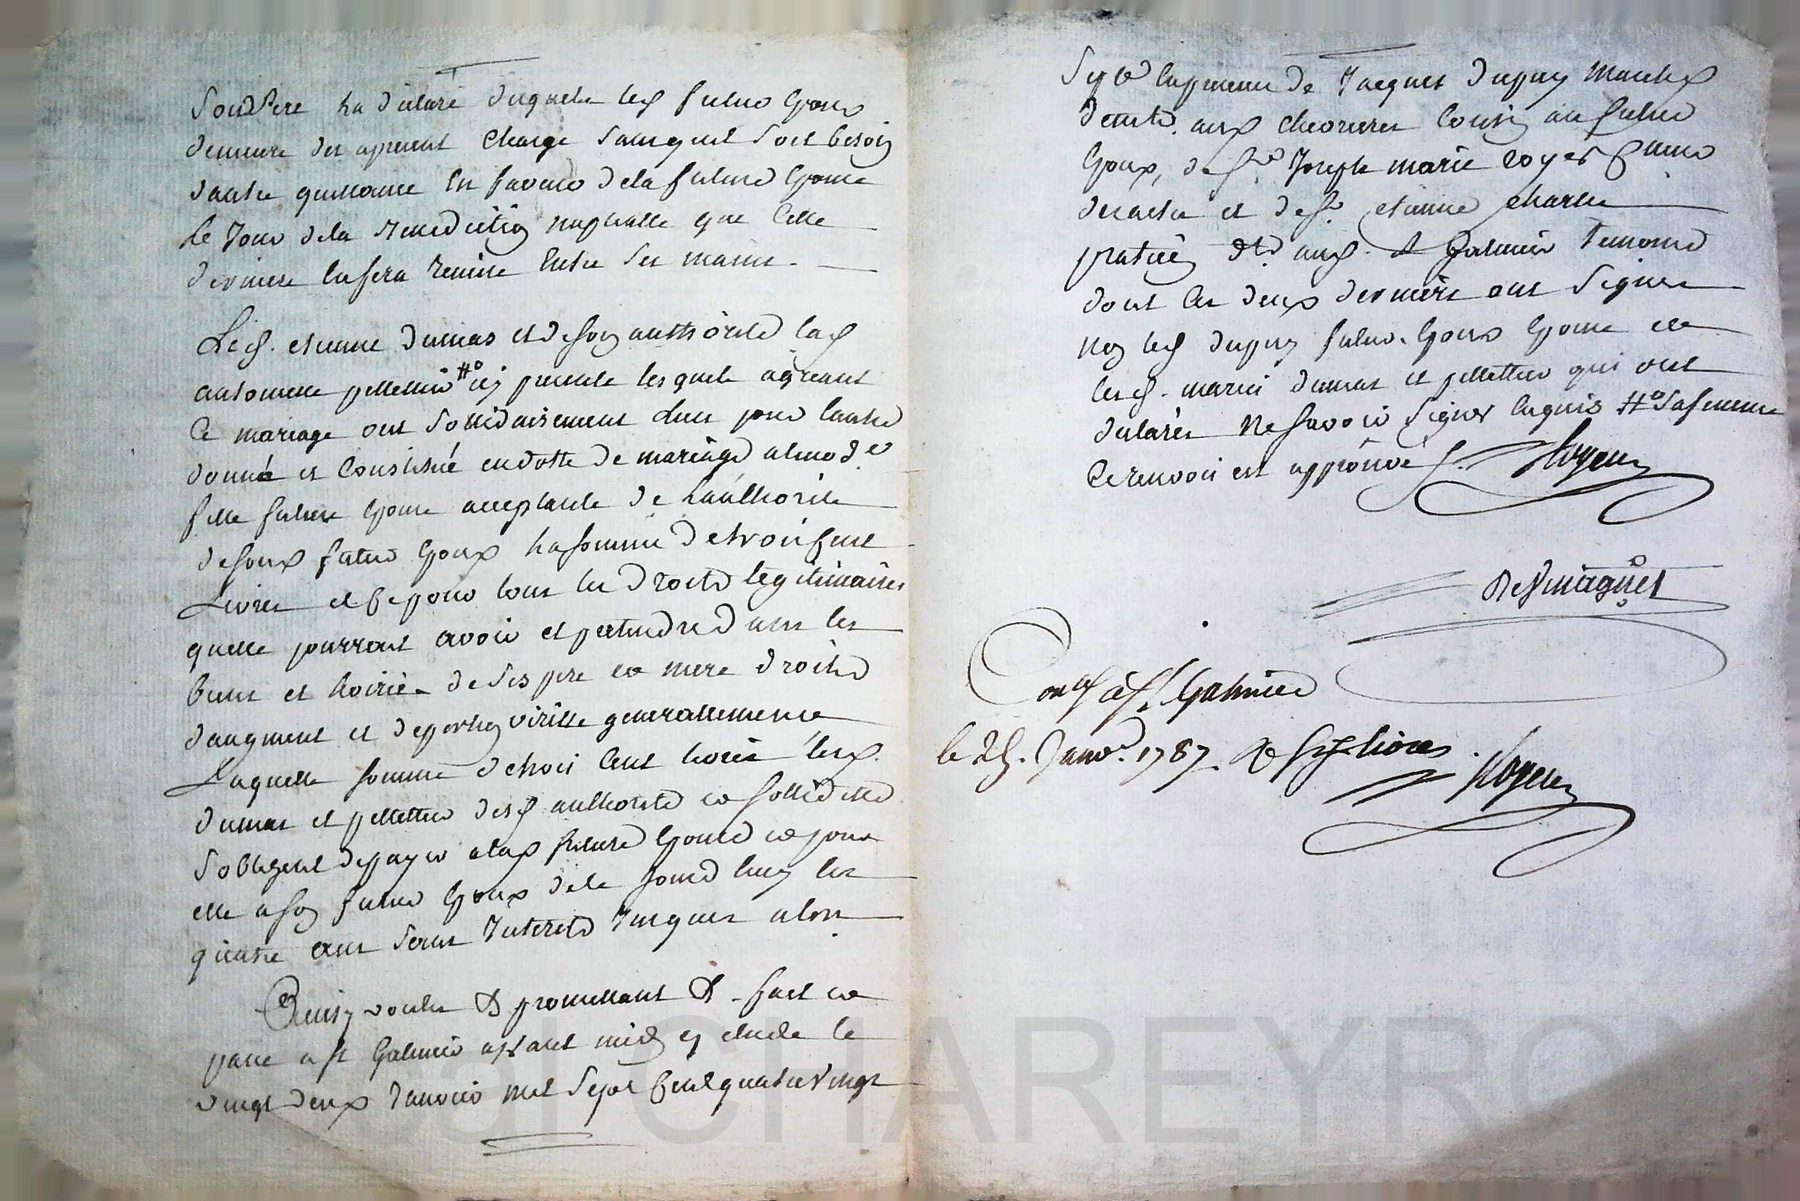 Son Pere ha déclaré duquelle led. futur Epoux
demeure des apresent Chargé sans quil soit besoin
dautre quittance En faveur de la future Epouse
le Jour dela Benediction nuptialle que Cette
derniere la sera remise Entre ses mains.
Led. etienne dumas et de son authorité lad.
antoinette pelletier #° icy presente lesquels agréant
Ce mariage ont sollidairement Lun pour lautre
donné et Constitué en dotte de mariage alad.e
fille future Epouse acceptante de Lauthorité
desond. futur Epoux la somme de trois Cent
Livres et Ce pour tous les droits legitimaires
quelle pourroit avoir et pretendre dans les
biens et hoirie de ses pere et mere droits
daugment et de portion virille generallement
Laquelle somme de trois Cent livres lesd.
dumas et pelletier desd. authorité et sollidité
sobligent de payer a lad. future Epouse et pour
elle a son futur Epoux de ce jourd'huy En
quatre ans sans Interets Jusques alors
Ainsy voulu & promettant & fait et
passé a St Galmier apres midy en étude le
vingt deux Janvier mil Sept Cent quatre vingt
Sept En presence de Jacques dupuy
demt. aux cousin au futur
Epoux, de s.r Joseph marie royer
et de s.r etienne charles
praticien dt. aud. St Galmier temoins
dont les deux derniers ont Signés
non led. dupuy futur Epoux Epouse et
lesd. mariés dumas et pelletier qui ont
déclarés Ne savoir Signer Enquis #° sa femme
Ce renvoi est approuvé Royer
Desmagnet
Con.lé à St. Galmier
le 25. Janv.r 1787. Royer
al CHAREYRO